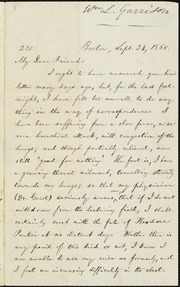 Wm. L. Garrison
231 Boston, Sept. 28, 1860.
My Dear Friend:
I ought to have answered your kind
letter many days ago, but, for the last fort-
night, I have felt too unwell to do any
thing in the way of correspondence. I
have been suffering from a slow fever, a se-
vere bronchial attack, with congestion of the
lungs, and though partially relieved, am
still "good for nothing." The fact is, I have
a growing throat ailment, travelling steadily
towards my lungs; so that my physician
(Dr. Geist) seriously warns, that if I do not
withdraw from the lecturing field, I shall
certainly meet with the fate of Theodore
Parker at no distant day. Whether there is
any peril of this kind or not, I know I
am unable to use my voice as formerly, and
I feel an increasing difficulty in the chest.